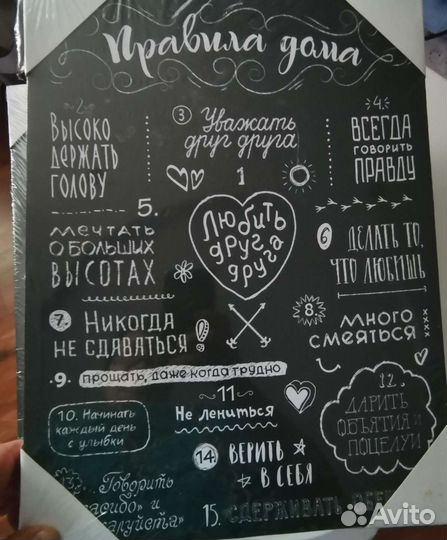 Правила дома
1
Любить
друг
друга
2.
Высоко
держать
голову
3
Уважать
друг друга
4.
Всегда
говорить
правду
5.
Мечтать
о больших
высотах
6
Делать то,
что любишь
7.
Никогда
не сдаваться
8.
Много
смеяться
9. прощать, даже когда трудно
10. Начинать
каждый день
с улыбки
11
Не лениться
12.
Дарить
объятия и
поцелуи
Говорить
14. Верить
в себя
15. Сдерживать
Avito